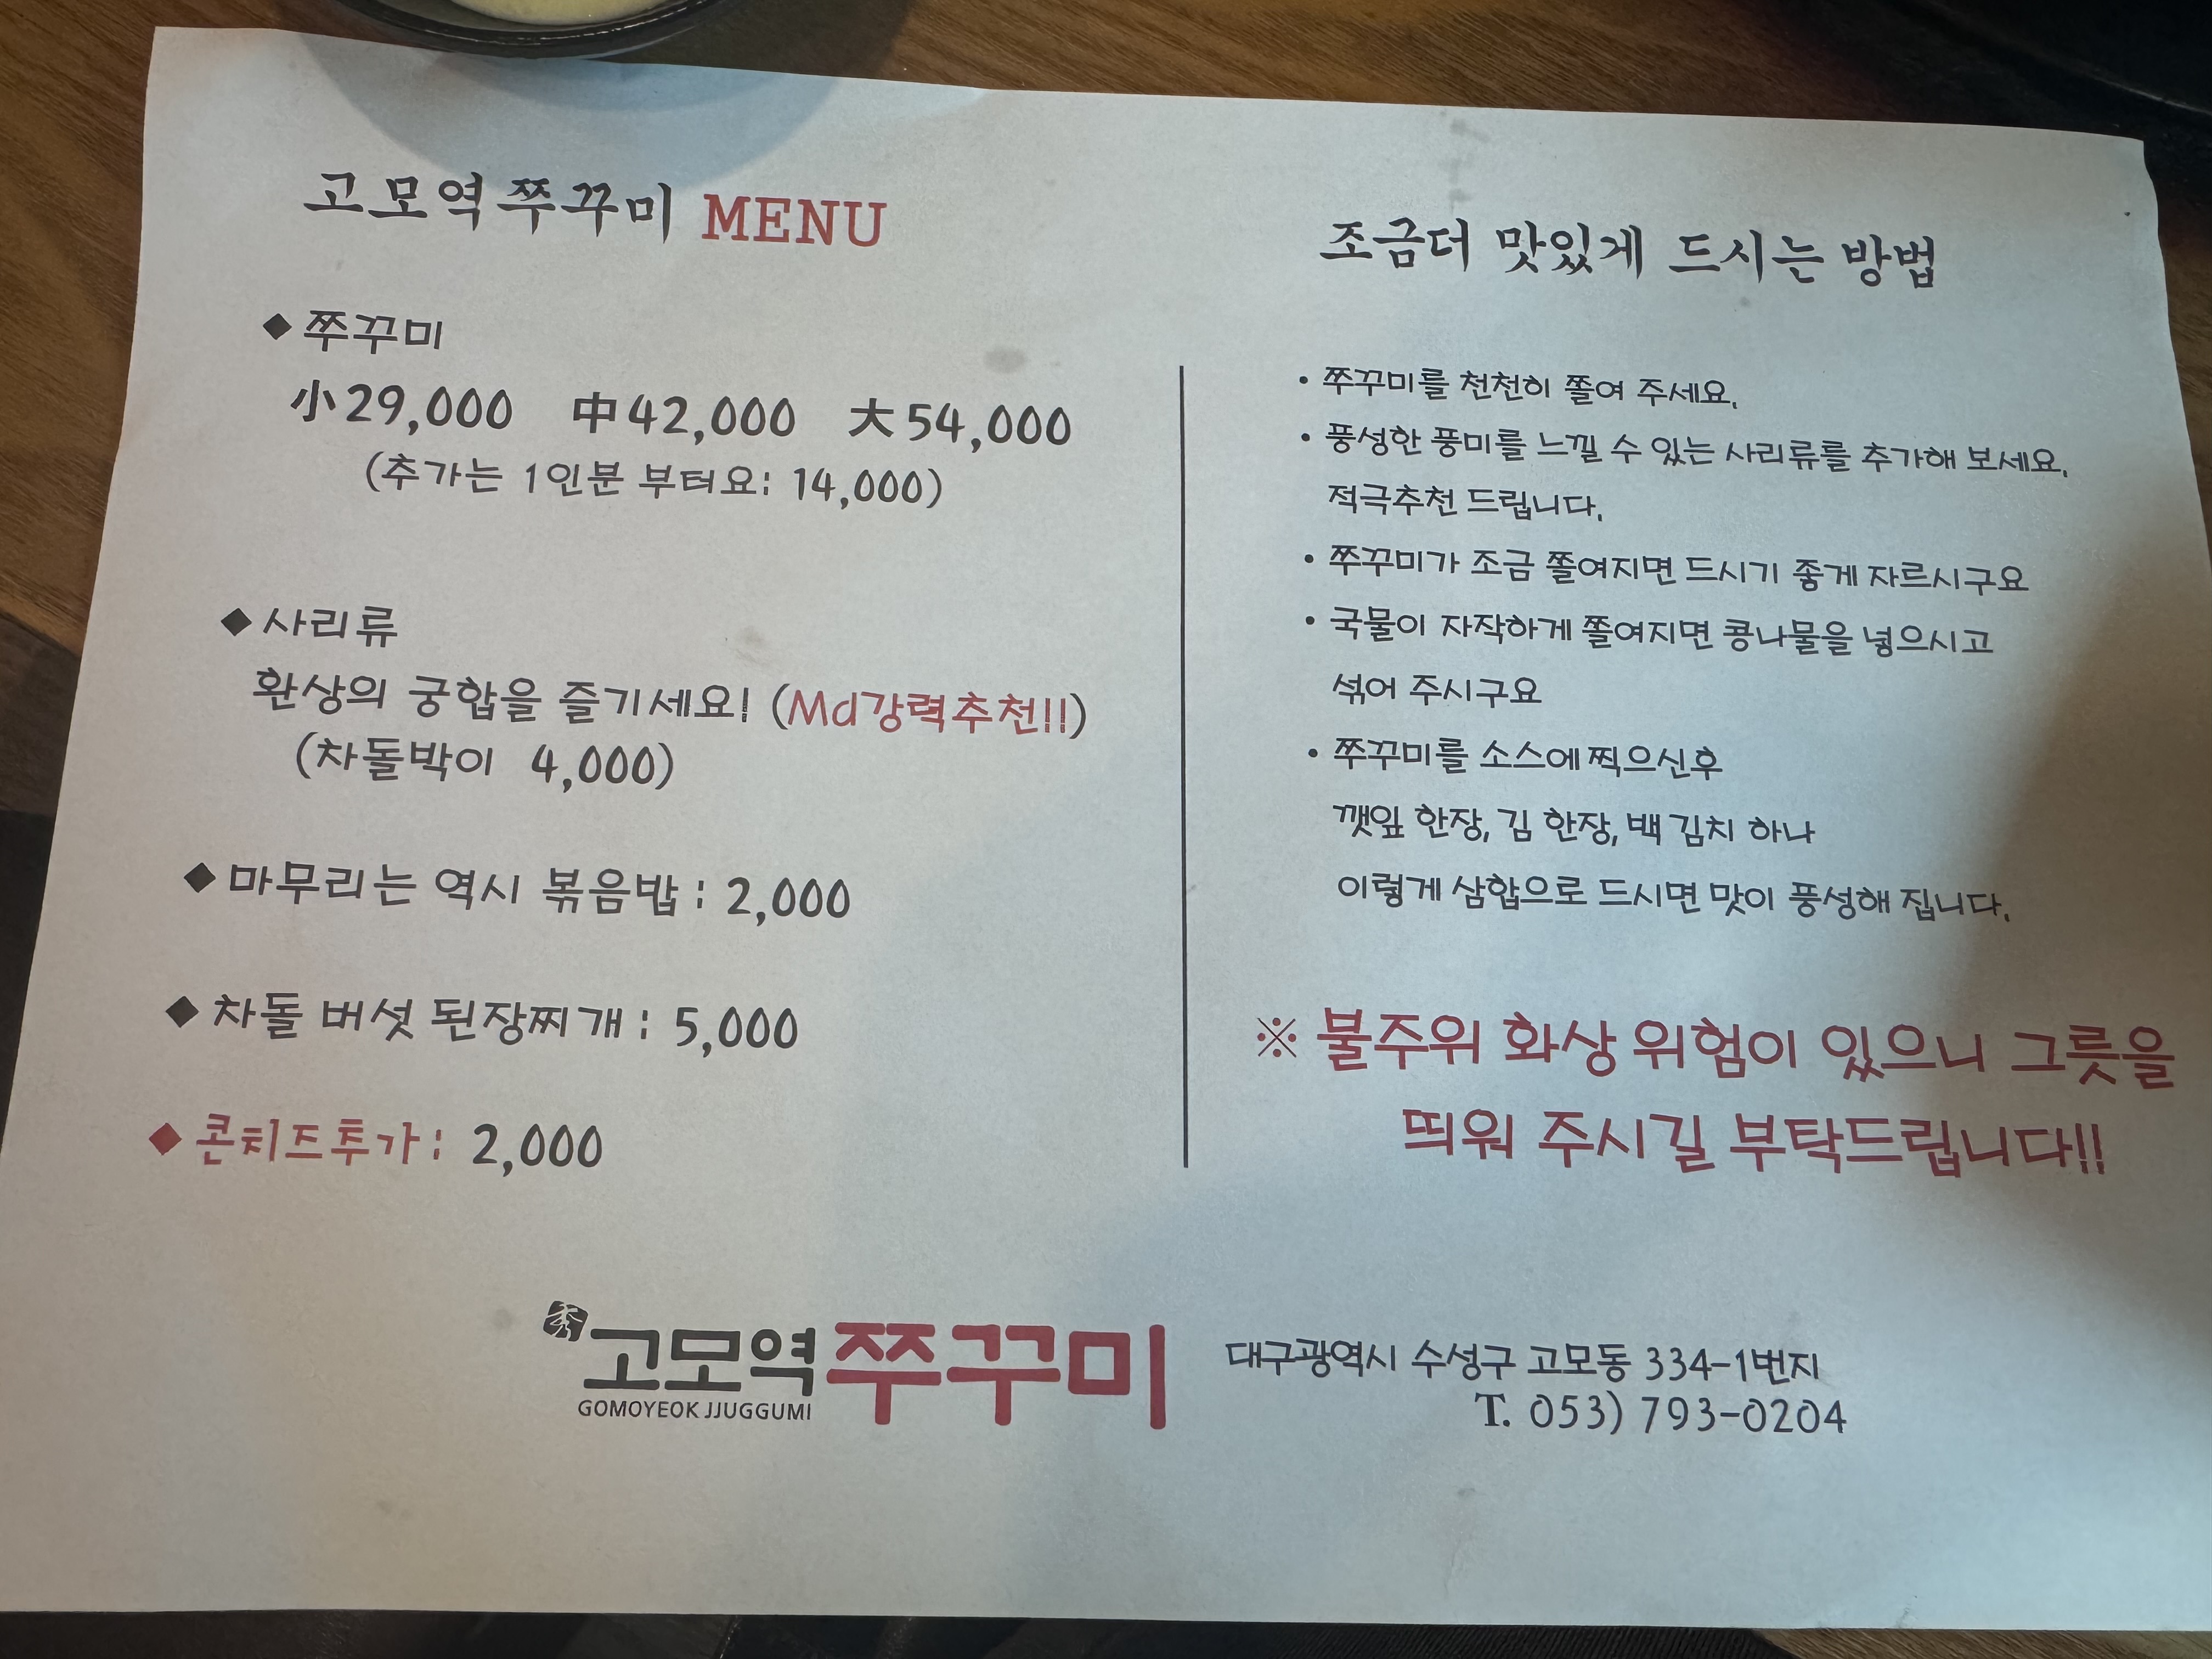 고모역쭈꾸미 MENU
◆ 쭈꾸미
小29,000 中42,000 大54,000
(추가는 1인분 부터요: 14,000)
◆ 사리류
환상의 궁합을 즐기세요! (Md강력추천!!)
(차돌박이 4,000)
◆ 마무리는 역시 볶음밥 : 2,000
◆ 차돌 버섯 된장찌개 : 5,000
◆ 콘치즈추가 : 2,000
조금더 맛있게 드시는 방법
• 쭈꾸미를 천천히 쫄여 주세요.
• 풍성한 풍미를 느낄 수 있는 사리류를 추가해 보세요.
적극추천 드립니다.
• 쭈꾸미가 조금 쫄여지면 드시기 좋게 자르시구요
• 국물이 자작하게 쫄여지면 콩나물을 넣으시고
섞어 주시구요
• 쭈꾸미를 소스에 찍으신후
깻잎 한장, 김 한장, 백김치 하나
이렇게 삼합으로 드시면 맛이 풍성해 집니다.
※ 불주위 화상 위험이 있으니 그릇을
띄워 주시길 부탁드립니다!!
고모역쭈꾸미
GOMOYEOK JJUGGUMI
대구광역시 수성구 고모동 334-1번지
T. 053) 793-0204